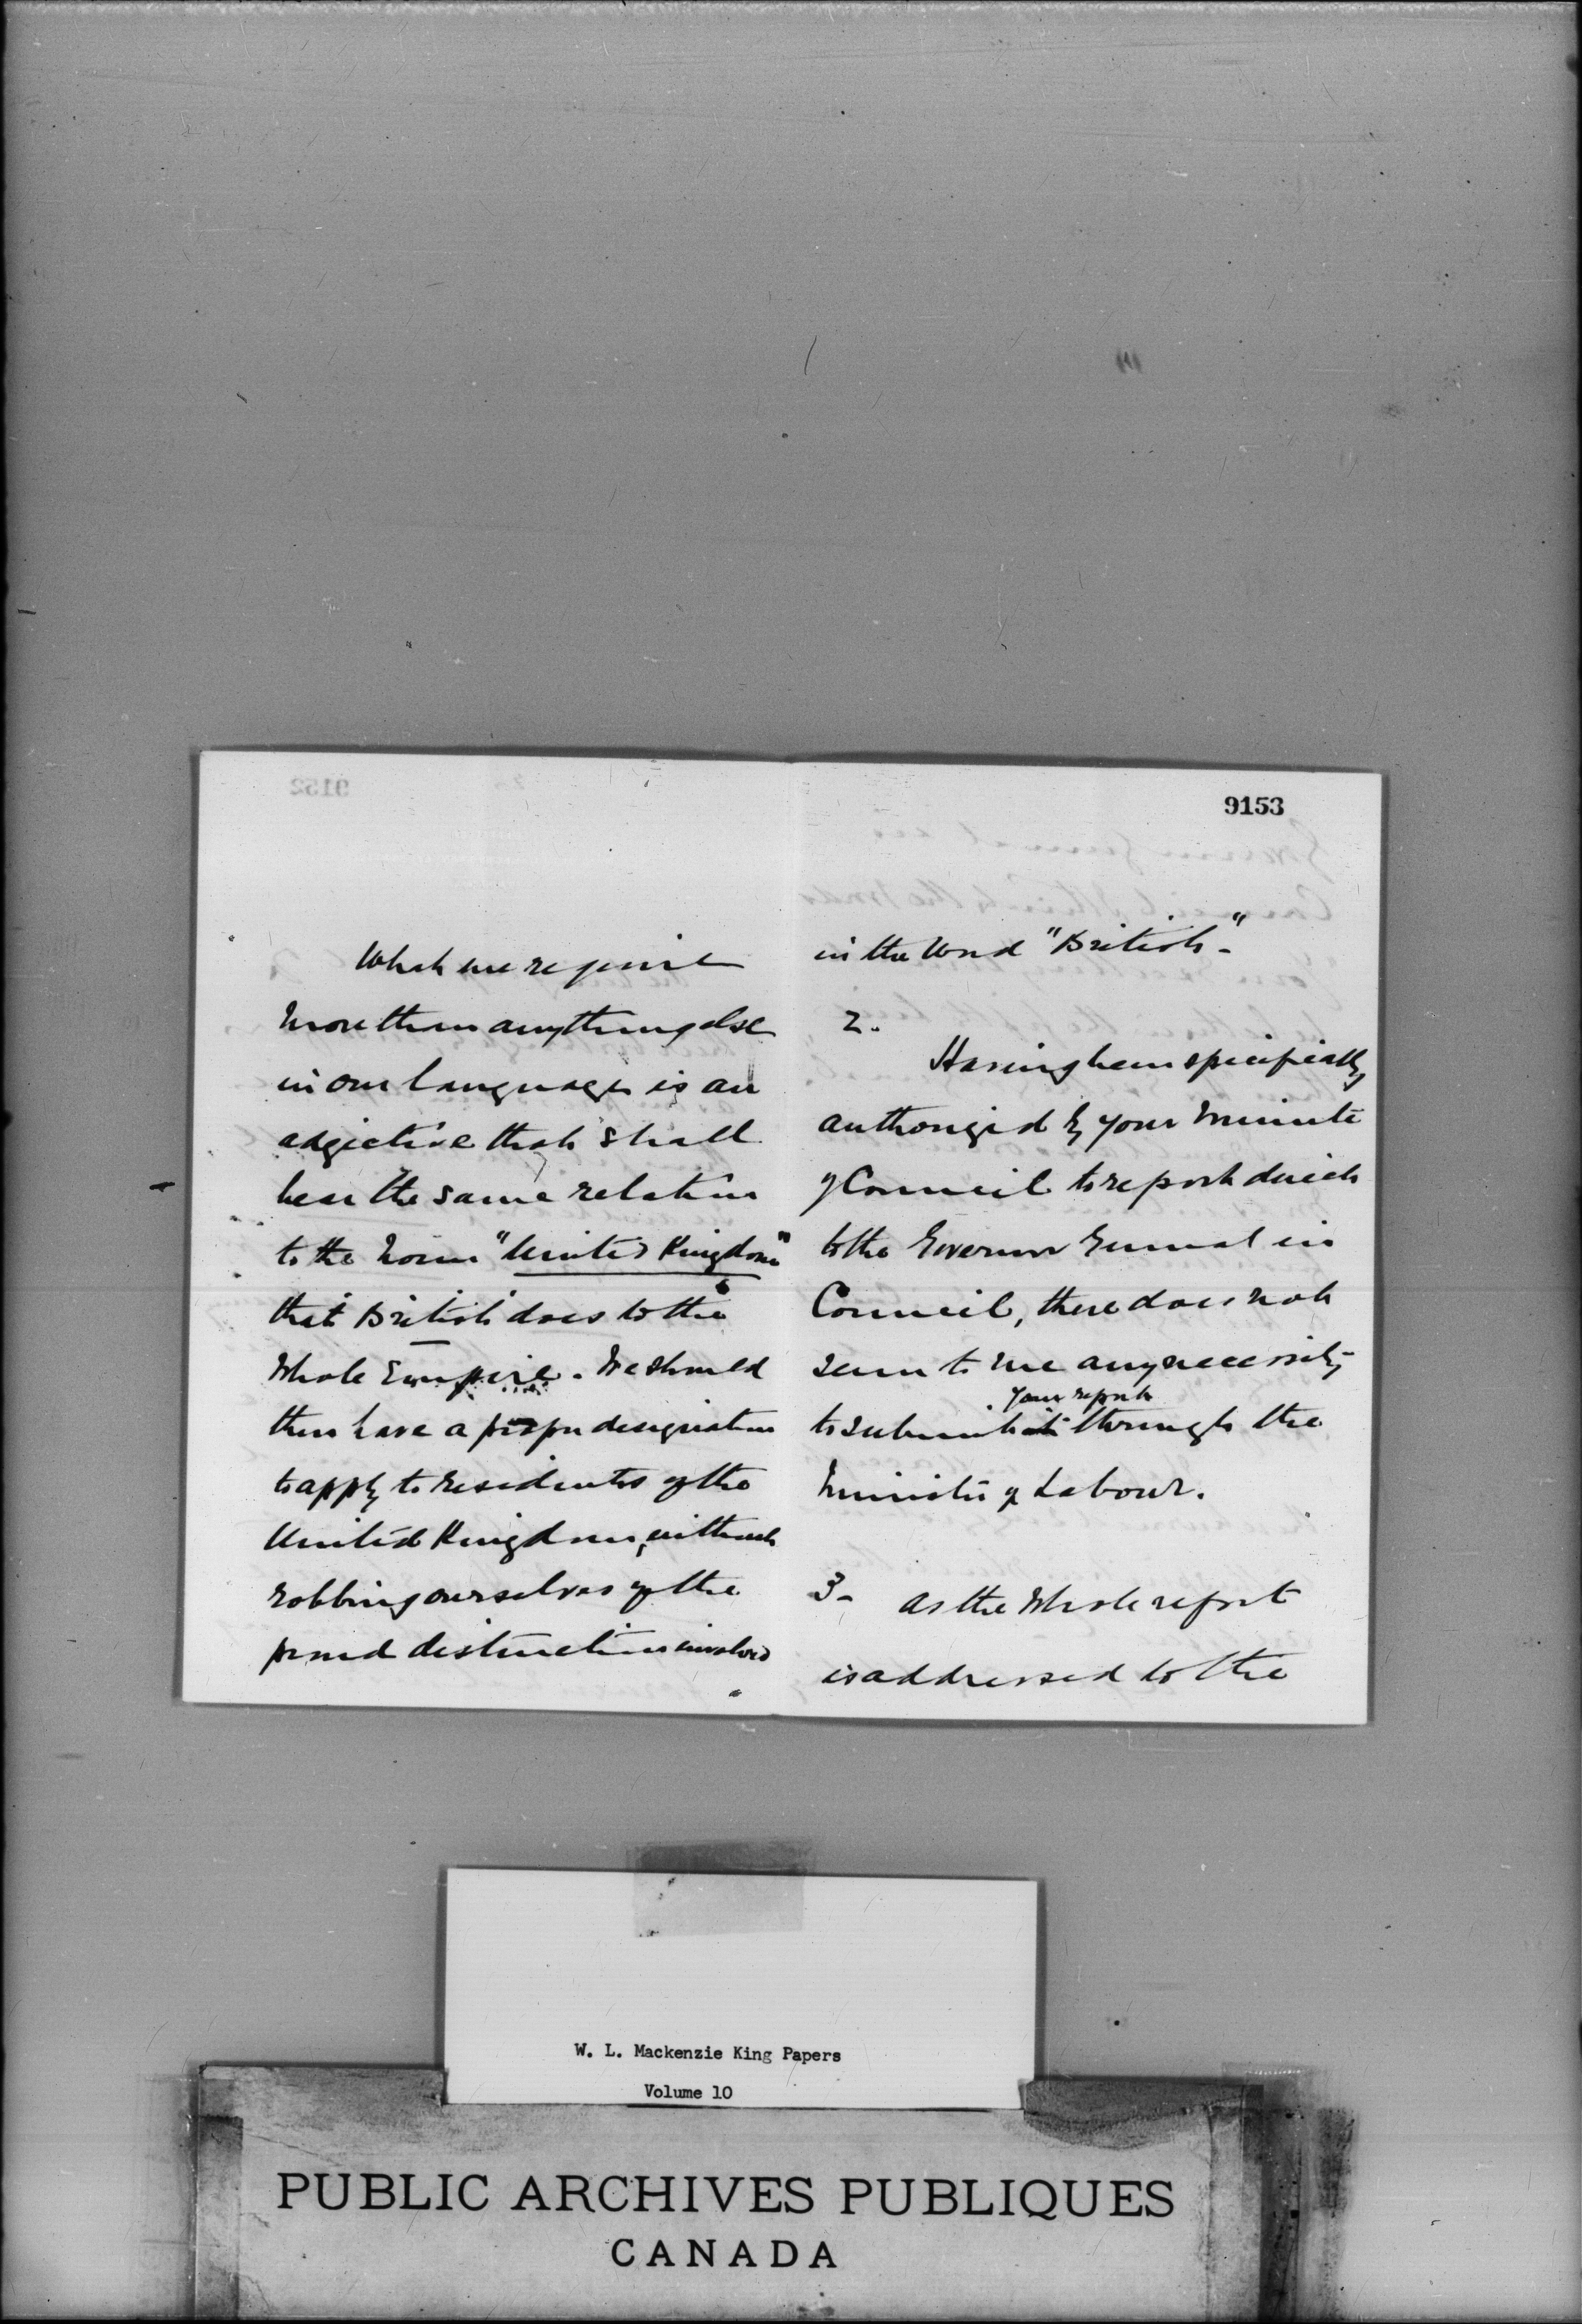 9153
What we require
more than anything else
in our language is an
adjective that shall
bear the same relation
to the noun "United Kingdom"
that British does to the
whole Empire. We should
then have a proper designation
to apply to residents of the
United Kingdom, without
robbing ourselves of the
proud distinction involved
in the word "British"-
2.
Having been specifically
authorized by your Minute
of Council to report direct
to the Governor General in
Council, there does not
seem to me any necessity
your report
to submit it through the
Minister of Labour.
3- As the whole report
is addressed to the
W. L. Mackenzie King Papers
Volume 10
PUBLIC ARCHIVES PUBLIQUES
CANADA